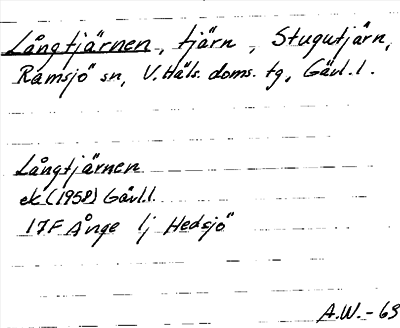 Långtjärnen, tjärn, Stugutjärn,
Ramsjö sn, V. Häls. doms. tg, Gävl. l.
Långtjärnen
ek (1958) Gävl.l.
17F Ånge lj Hedsjö
A.W.-63